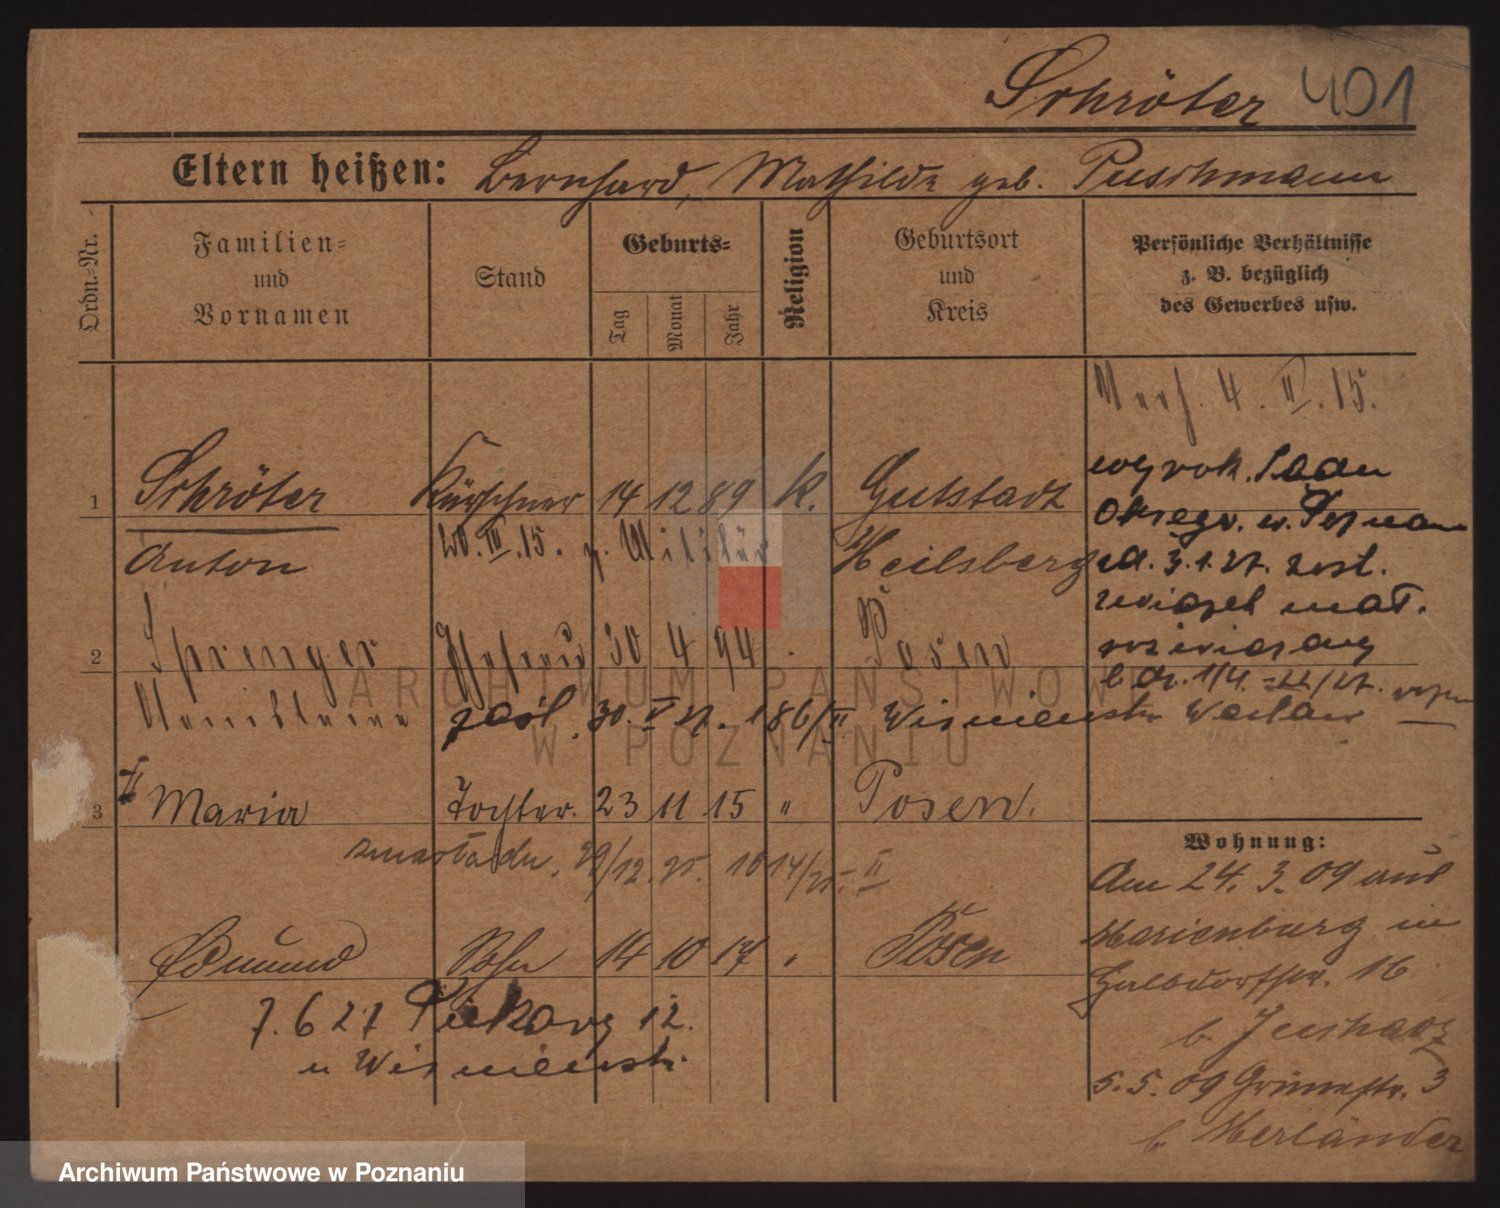 Schröter 401
Eltern heißen: Bernhard, Mathilde geb. Puschmann
Ordn.-Nr.
Familien-
und
Vornamen
Stand
Geburts-
Tag
Monat
Jahr
Religion
Geburtsort
und
Kreis
Persönliche Verhältnisse
z. B. bezüglich
des Gewerbes usw.
4. II. 15.
1 Schröter Kürschner 14 12 89 K. Gutstadt
Anton 20. III. 15. z. Militär Heilsberg
wyrok. Sądu
Okręgow. w. Poznaniu
z d. 3.1.27. zost.
związek mat.
rozwiązany
2 Sprenger Ehefrau 30 4 94 Posen
zaśl. 30. V 27. 186/II Wiśniewski Wacław
3 II Maria Tochter. 23 11 15 " Posen.
zmarła dn. 29/12. 25. 1814/25. II
Edmund Sohn 14 10 17 " Posen
7. 6 27 Piekary 12.
u Wiśniewsk.
Wohnung:
Am 24. 3. 09 aus
Marienburg in
Halbdorfstr. 16
b.
5. 5. 09 3
b.
ARCHIWUM PAŃSTWOWE
W POZNANIU
Archiwum Państwowe w Poznaniu